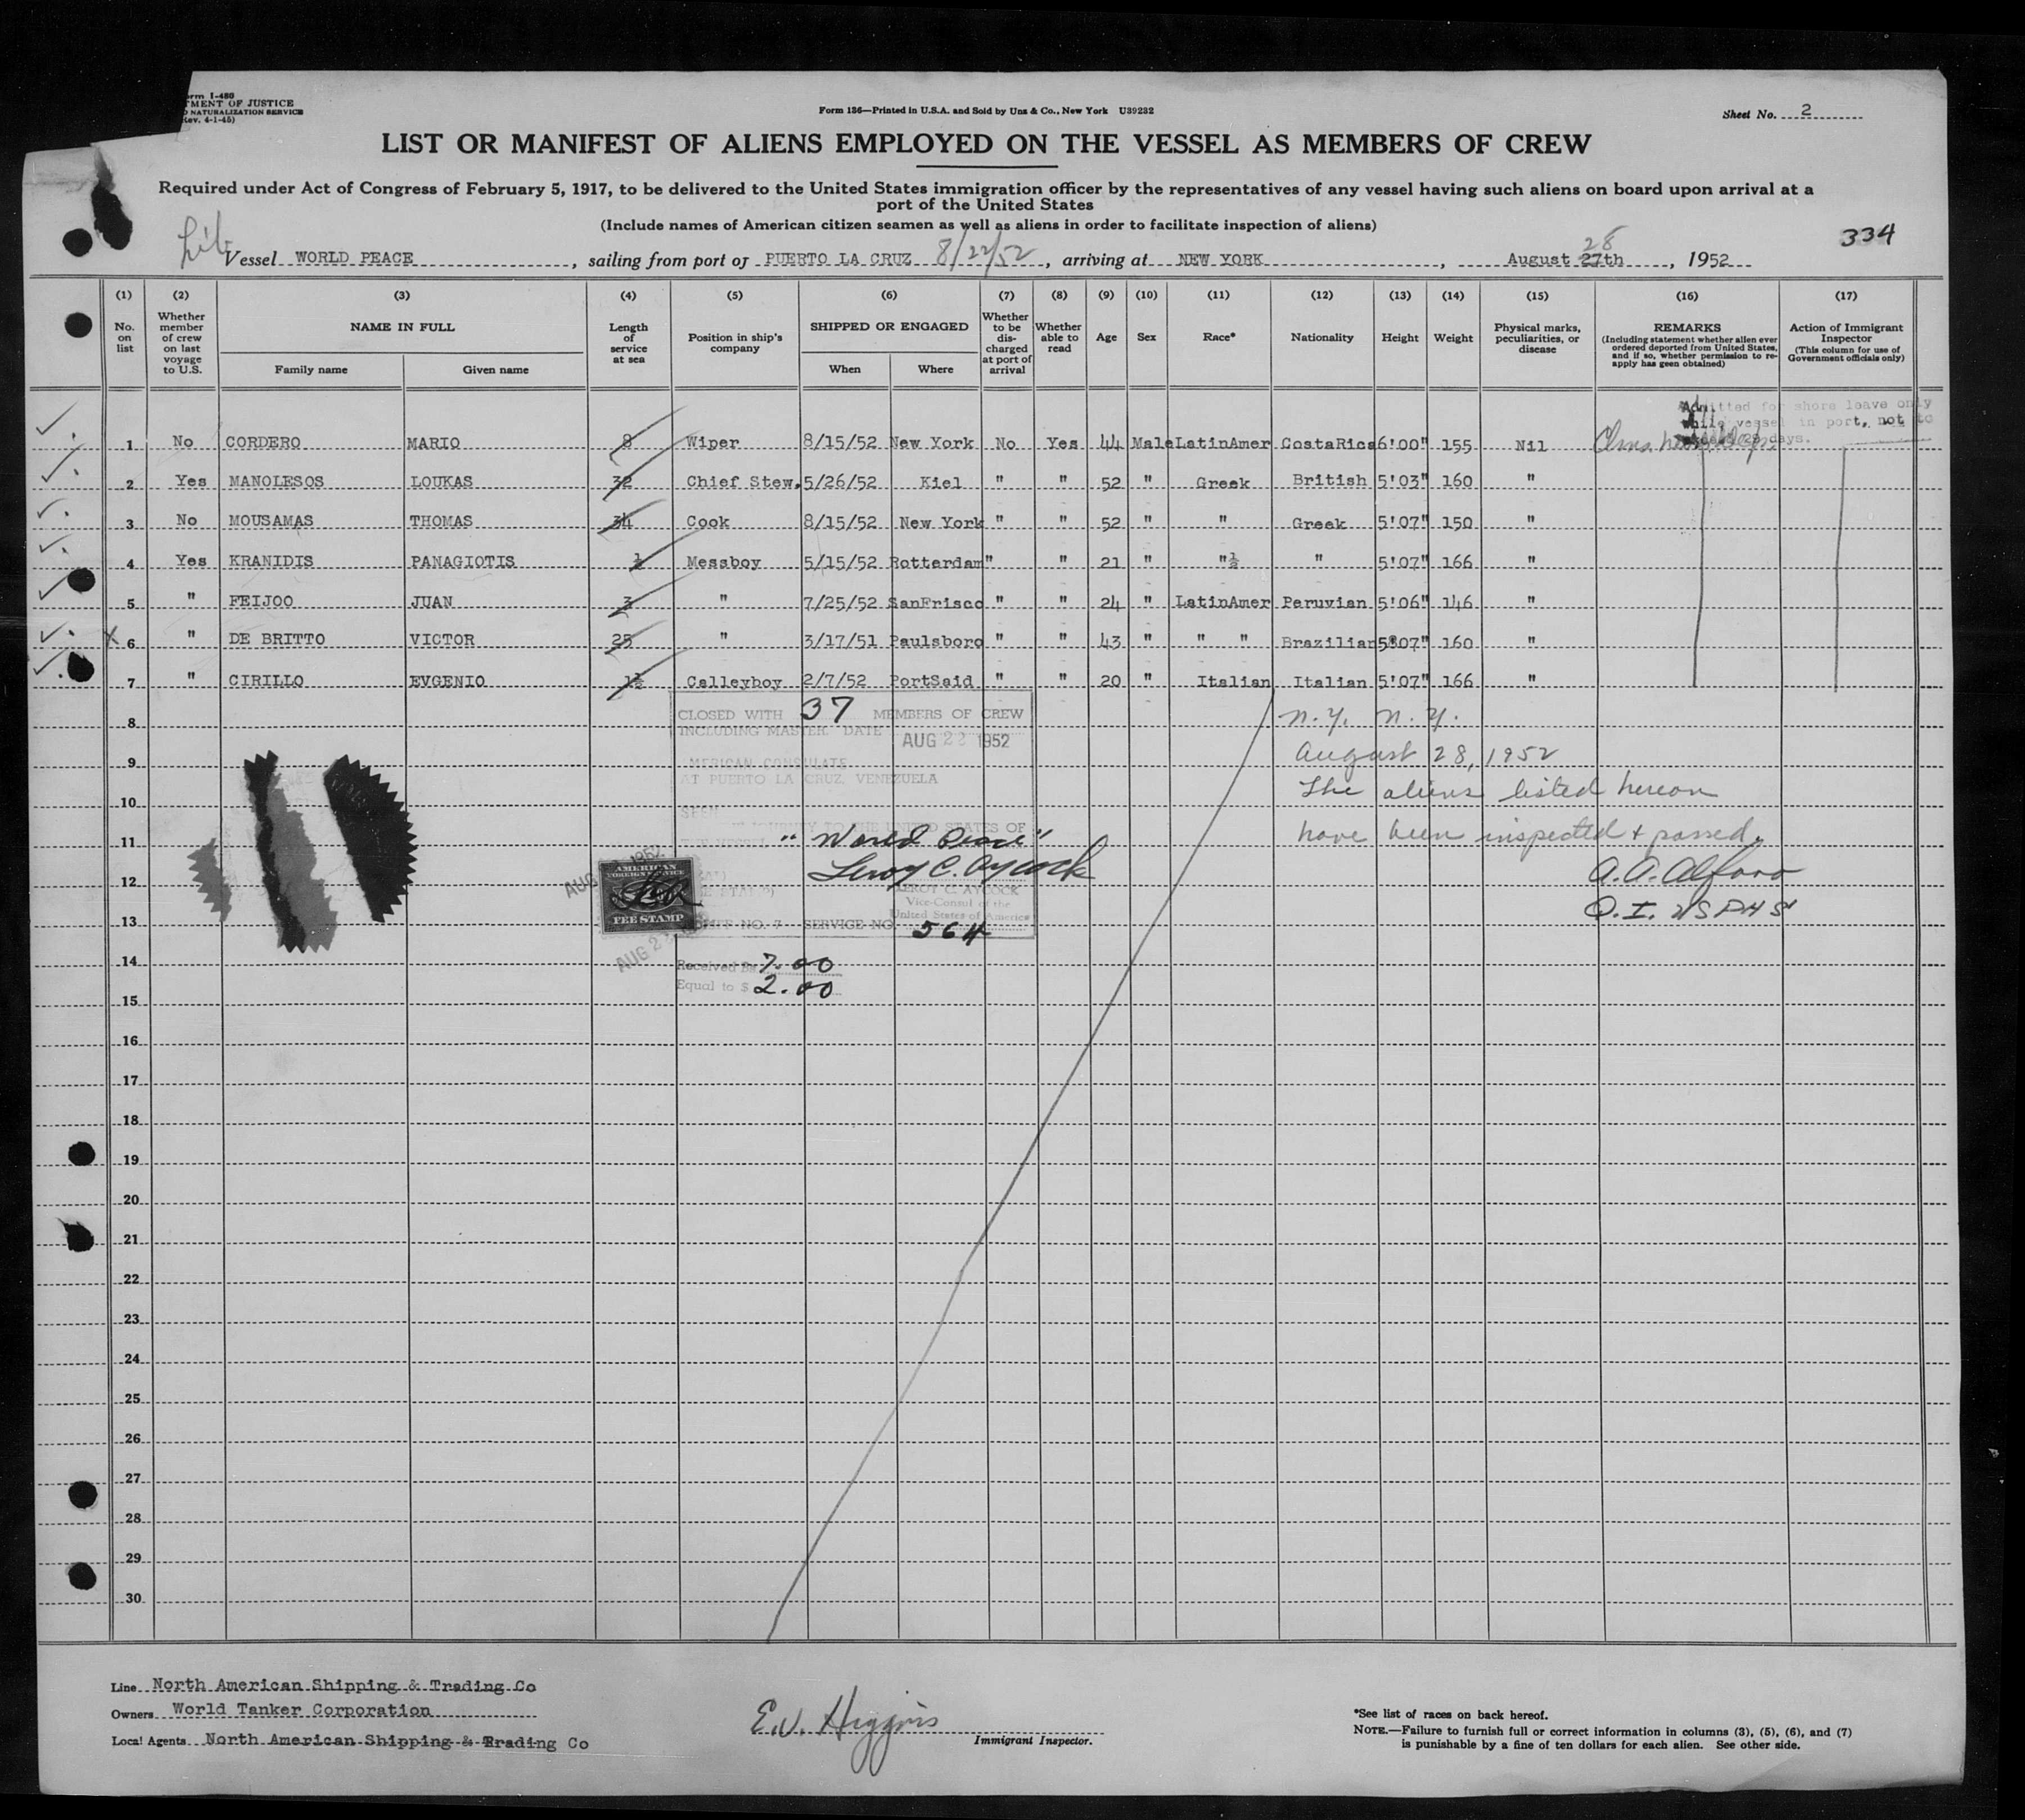 orm I-480
TMENT OF JUSTICE
D NATURALIZATION SERVICE
Rev. 4-1-45)
Form 136—Printed in U.S.A. and Sold by Unz & Co., New York U39232
Sheet No. 2
LIST OR MANIFEST OF ALIENS EMPLOYED ON THE VESSEL AS MEMBERS OF CREW
Required under Act of Congress of February 5, 1917, to be delivered to the United States immigration officer by the representatives of any vessel having such aliens on board upon arrival at a
port of the United States
(Include names of American citizen seamen as well as aliens in order to facilitate inspection of aliens)
334
Lib
28
Vessel WORLD PEACE, sailing from port of PUERTO LA CRUZ 8/22/52, arriving at NEW YORK, August 27th, 1952
(1) (2) (3) (4) (5) (6) (7) (8) (9) (10) (11) (12) (13) (14) (15) (16) (17)
No. on list
Whether member of crew on last voyage to U.S.
NAME IN FULL
Family name
Given name
Length of service at sea
Position in ship's company
SHIPPED OR ENGAGED
When
Where
Whether to be dis-charged at port of arrival
Whether able to read
Age
Sex
Race*
Nationality
Height
Weight
Physical marks, peculiarities, or disease
REMARKS
(Including statement whether alien ever ordered deported from United States, and if so, whether permission to re-apply has geen obtained)
Action of Immigrant Inspector
(This column for use of Government officials only)
Admitted for shore leave only
while vessel in port, not to
29 days.
1 No CORDERO MARIO 8 Wiper 8/15/52 New York No Yes 44 Male LatinAmer CostaRica 6'00" 155 Nil
2 Yes MANOLESOS LOUKAS 32 Chief Stew. 5/26/52 Kiel " " 52 " Greek British 5'03" 160 "
3 No MOUSAMAS THOMAS 34 Cook 8/15/52 New York " " 52 " " Greek 5'07" 150 "
4 Yes KRANIDIS PANAGIOTIS ½ Messboy 5/15/52 Rotterdam " " 21 " "½ " 5'07" 166 "
5 " FEIJOO JUAN 3 " 7/25/52 SanFrisco " " 24 " LatinAmer Peruvian 5'06" 146 "
X 6 " DE BRITTO VICTOR 25 " 3/17/51 Paulsboro " " 43 " " " Brazilian 5'07" 160 "
7 " CIRILLO EVGENIO 1½ Galleyboy 2/7/52 PortSaid " " 20 " Italian Italian 5'07" 166 "
8
9
10
11
12
13
14
15
16
17
18
19
20
21
22
23
24
25
26
27
28
29
30
CLOSED WITH 37 MEMBERS OF CREW
INCLUDING MASTER. DATE AUG 22 1952
AMERICAN CONSULATE
AT PUERTO LA CRUZ, VENEZUELA
SEEN
JOURNEY TO THE UNITED STATES OF
THE VESSEL "World Peace"
Leroy C. Aycock
LEROY C. AYCOCK
Vice-Consul of the
United States of America
NO. 7 SERVICE NO. 564
Received Bs 7.00
Equal to $ 2.00
AMERICAN
FOREIGN SERVICE
FEE STAMP
n.y. n.y.
August 28, 1952
The aliens listed hereon
have been inspected & passed.
A.A. Alfaro
Q.I. USPHS
Line North American Shipping & Trading Co
Owners World Tanker Corporation
Local Agents North American Shipping & Trading Co
E.V. Higgins
Immigrant Inspector.
*See list of races on back hereof.
NOTE.—Failure to furnish full or correct information in columns (3), (5), (6), and (7)
is punishable by a fine of ten dollars for each alien. See other side.